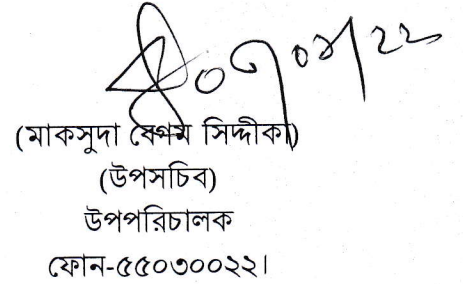 (মাকসুদা বেগম সিদ্দীকা)
(উপসচিব)
উপপরিচালক
ফোন-৫৫০৩০০২২।